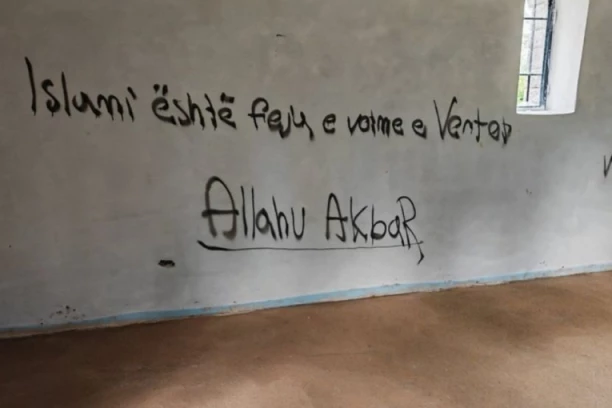 Islami është feja e votme e Vërtet
Allahu AKbaR